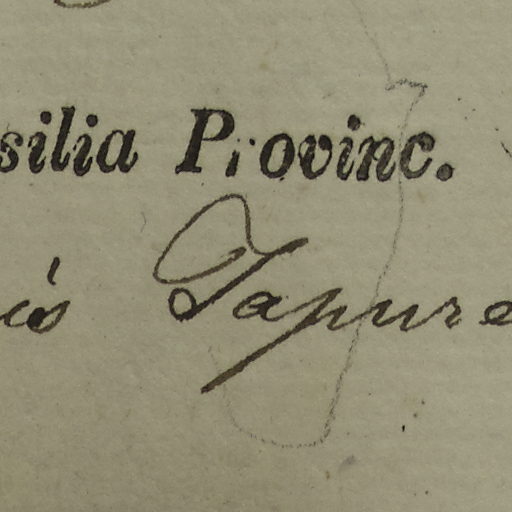 silia Provinc.
Japure